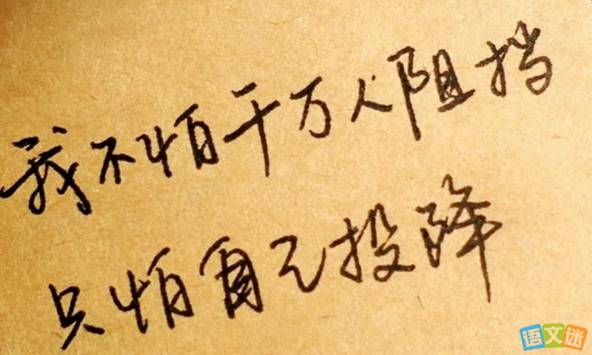 我不怕千万人阻挡
只怕自己投降
语文迷